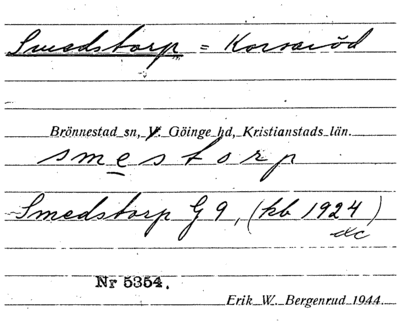 Smedstorp = Korsaröd
Brönnestad sn, V. Göinge hd, Kristianstads län.
smestorp
Smedstorp G 9, (kb 1924)
etc
Nr 5354.
Erik W. Bergenrud 1944.